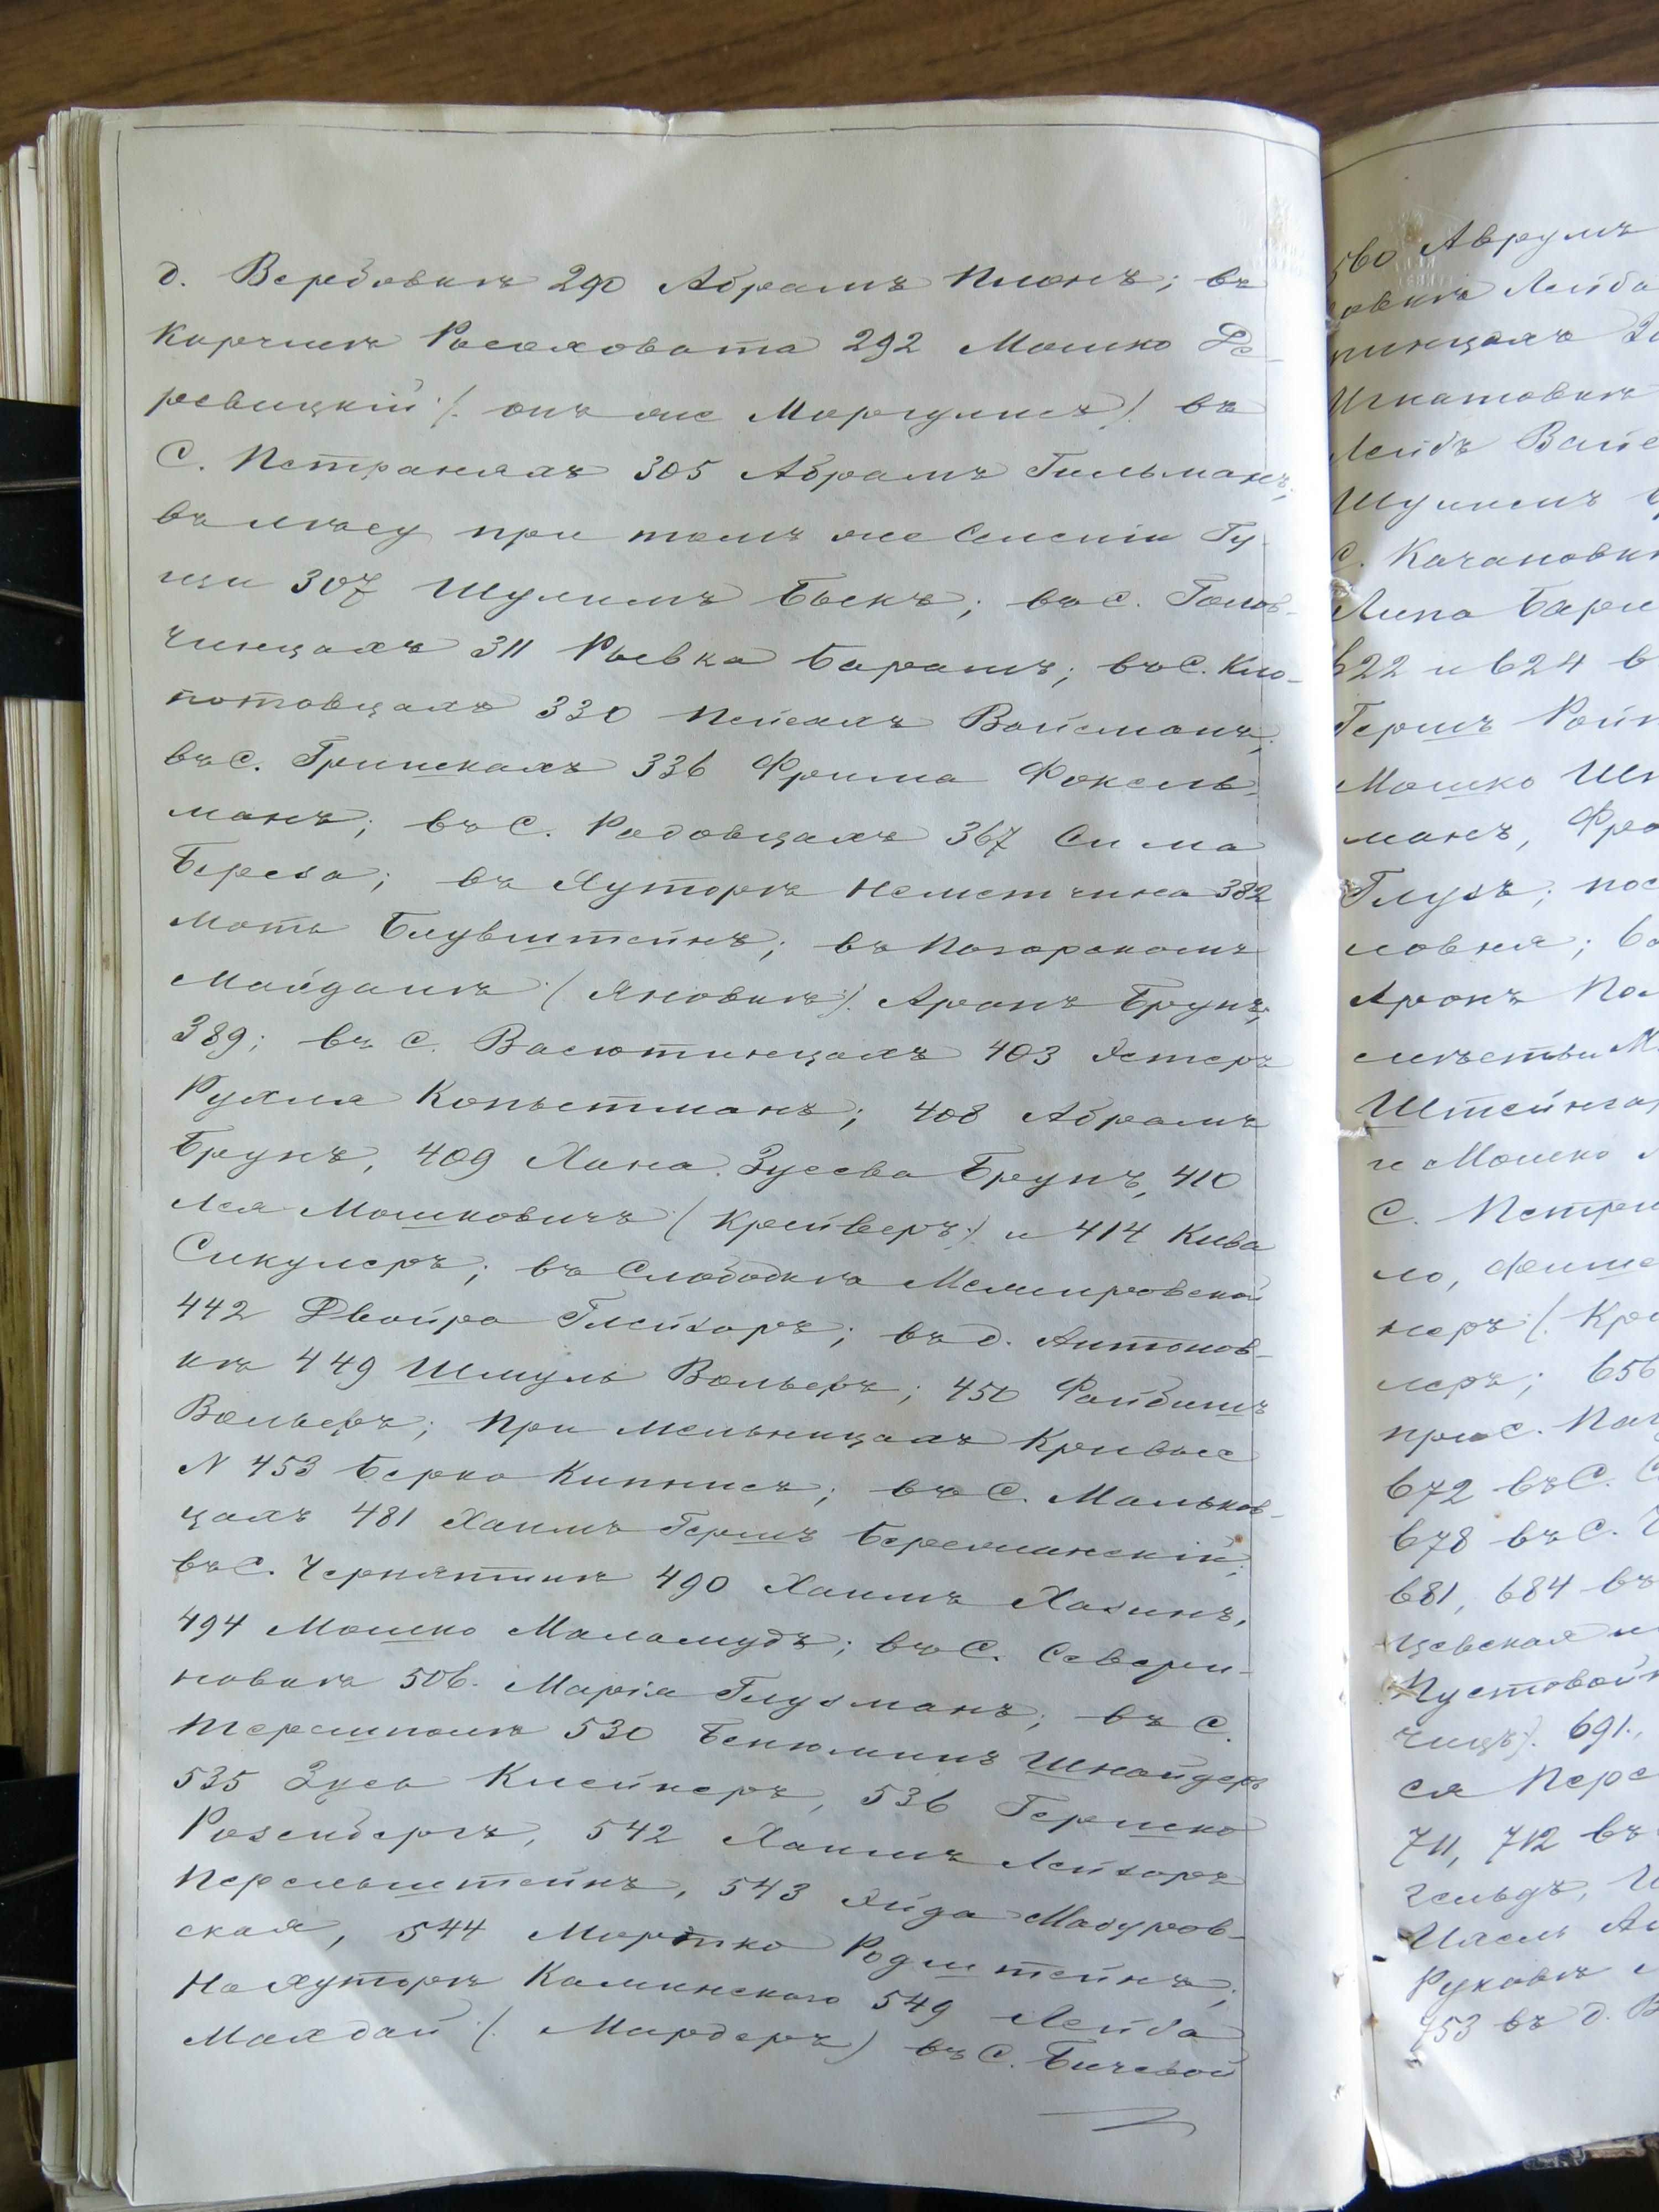 д. Вербовкѣ 290 Абрамъ Плонъ; въ
Корчмѣ Росоховата 292 Мошко Де-
ревицкій (онъ же Моргулисъ) въ
С. Петраняхъ 305 Абрамъ Гильманъ;
въ лѣсу при томъ же Селеніи Гу-
щи 307 Шулимъ Быкъ; въ с. Голов-
чинцахъ 311 Рывка Барашъ; въ С. Кло-
потовцахъ 330 Пейсахъ Вайсманъ;
въ С. Гринскахъ 336 Фрима Фоксель-
манъ; въ С. Радовцахъ 367 Сима
Береза; въ Хуторѣ Неметчина 382
Моть Блувштейнъ; въ Погорскомъ
Майданѣ (Яновкѣ) Аронъ Брунъ,
389; въ С. Васютинцахъ 403 Эстеръ
Рухля Копыстманъ; 408 Абрамъ
Брунъ, 409 Хана Зусева Брунъ, 410
Лея Мошковичъ (Крейверъ) и 414 Кива
Сикулеръ; въ Слободкѣ Межировской
442 Двойра Глейзаръ; въ д. Антонов-
кѣ 449 Шмуль Вольверъ; 450 Файбишъ
Вольверъ; При мельницахъ Кривое
N 453 Берко Кипнисъ; въ С. Мальков-
цахъ 481 Хаимъ Гершъ Бережанскій;
въ С. Чернятинѣ 490 Хаимъ Хазинъ,
494 Мошко Маламудъ; въ С. Севери-
новкѣ 506. Марія Глузманъ; въ С.
Терешполѣ 530 Бенюминъ Шнайдеръ
535 Зусь Клейнеръ, 536 Гершко
Розенбергъ, 542 Хаимъ Лейзоръ
Перельштейнъ, 543 Эйда Мазуров-
ская, 544 Мортко Родштейнъ;
На Хуторѣ Каминскаго 549 Лейба
Махдай (Мардеръ) въ С. Бичевой
560 Аврумъ
Лейба
Игнатовкѣ
Лейбъ
Шулимъ
С. Качановк
Липа Бари
622 и 624 в
Гершъ Рой
Мошко
манъ, Фре
Глузъ; пос
ловня; въ
Аронъ По
Штейнга
и Мошко
С. Петра
ло,
неръ (Кре
леръ; 656
при с. Па
672 въ С. С
678 въ С. Ч
681, 684 въ
цевская
Пустовой
691.,
ся Пере
711, 712 въ
гельдъ,
753 въ д. В